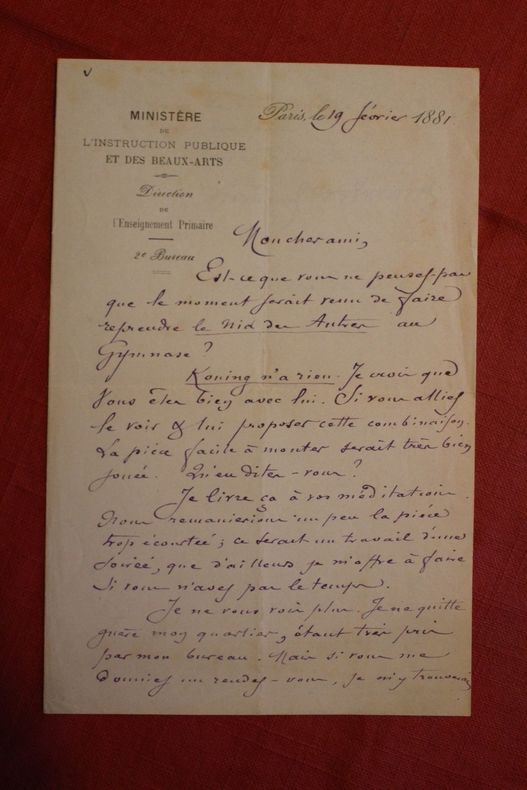 MINISTÈRE
DE
L'INSTRUCTION PUBLIQUE
ET DES BEAUX-ARTS
Direction
DE
l'Enseignement Primaire
2e Bureau
Paris, le 19 février 1881
Mon cher ami,
Est-ce que vous ne pensez pas
que le moment serait venu de faire
reprendre le Nid des Autres au
Gymnase ?
Koning n'a rien. Je crois que
vous êtes bien avec lui. Si vous alliez
le voir & lui proposer cette combinaison.
La pièce facile à monter serait très bien
jouée. Qu'en dites-vous ?
Je livre ça à vos méditations.
Nous remanierions un peu la pièce
trop écourtée ; ce serait un travail d'une
soirée, que d'ailleurs je m'offre à faire
si vous n'avez pas le temps.
Je ne vous vois plus. Je ne quitte
guère mon quartier, étant très pris
par mon bureau. Mais si vous me
donniez un rendez-vous, je m'y trouverais